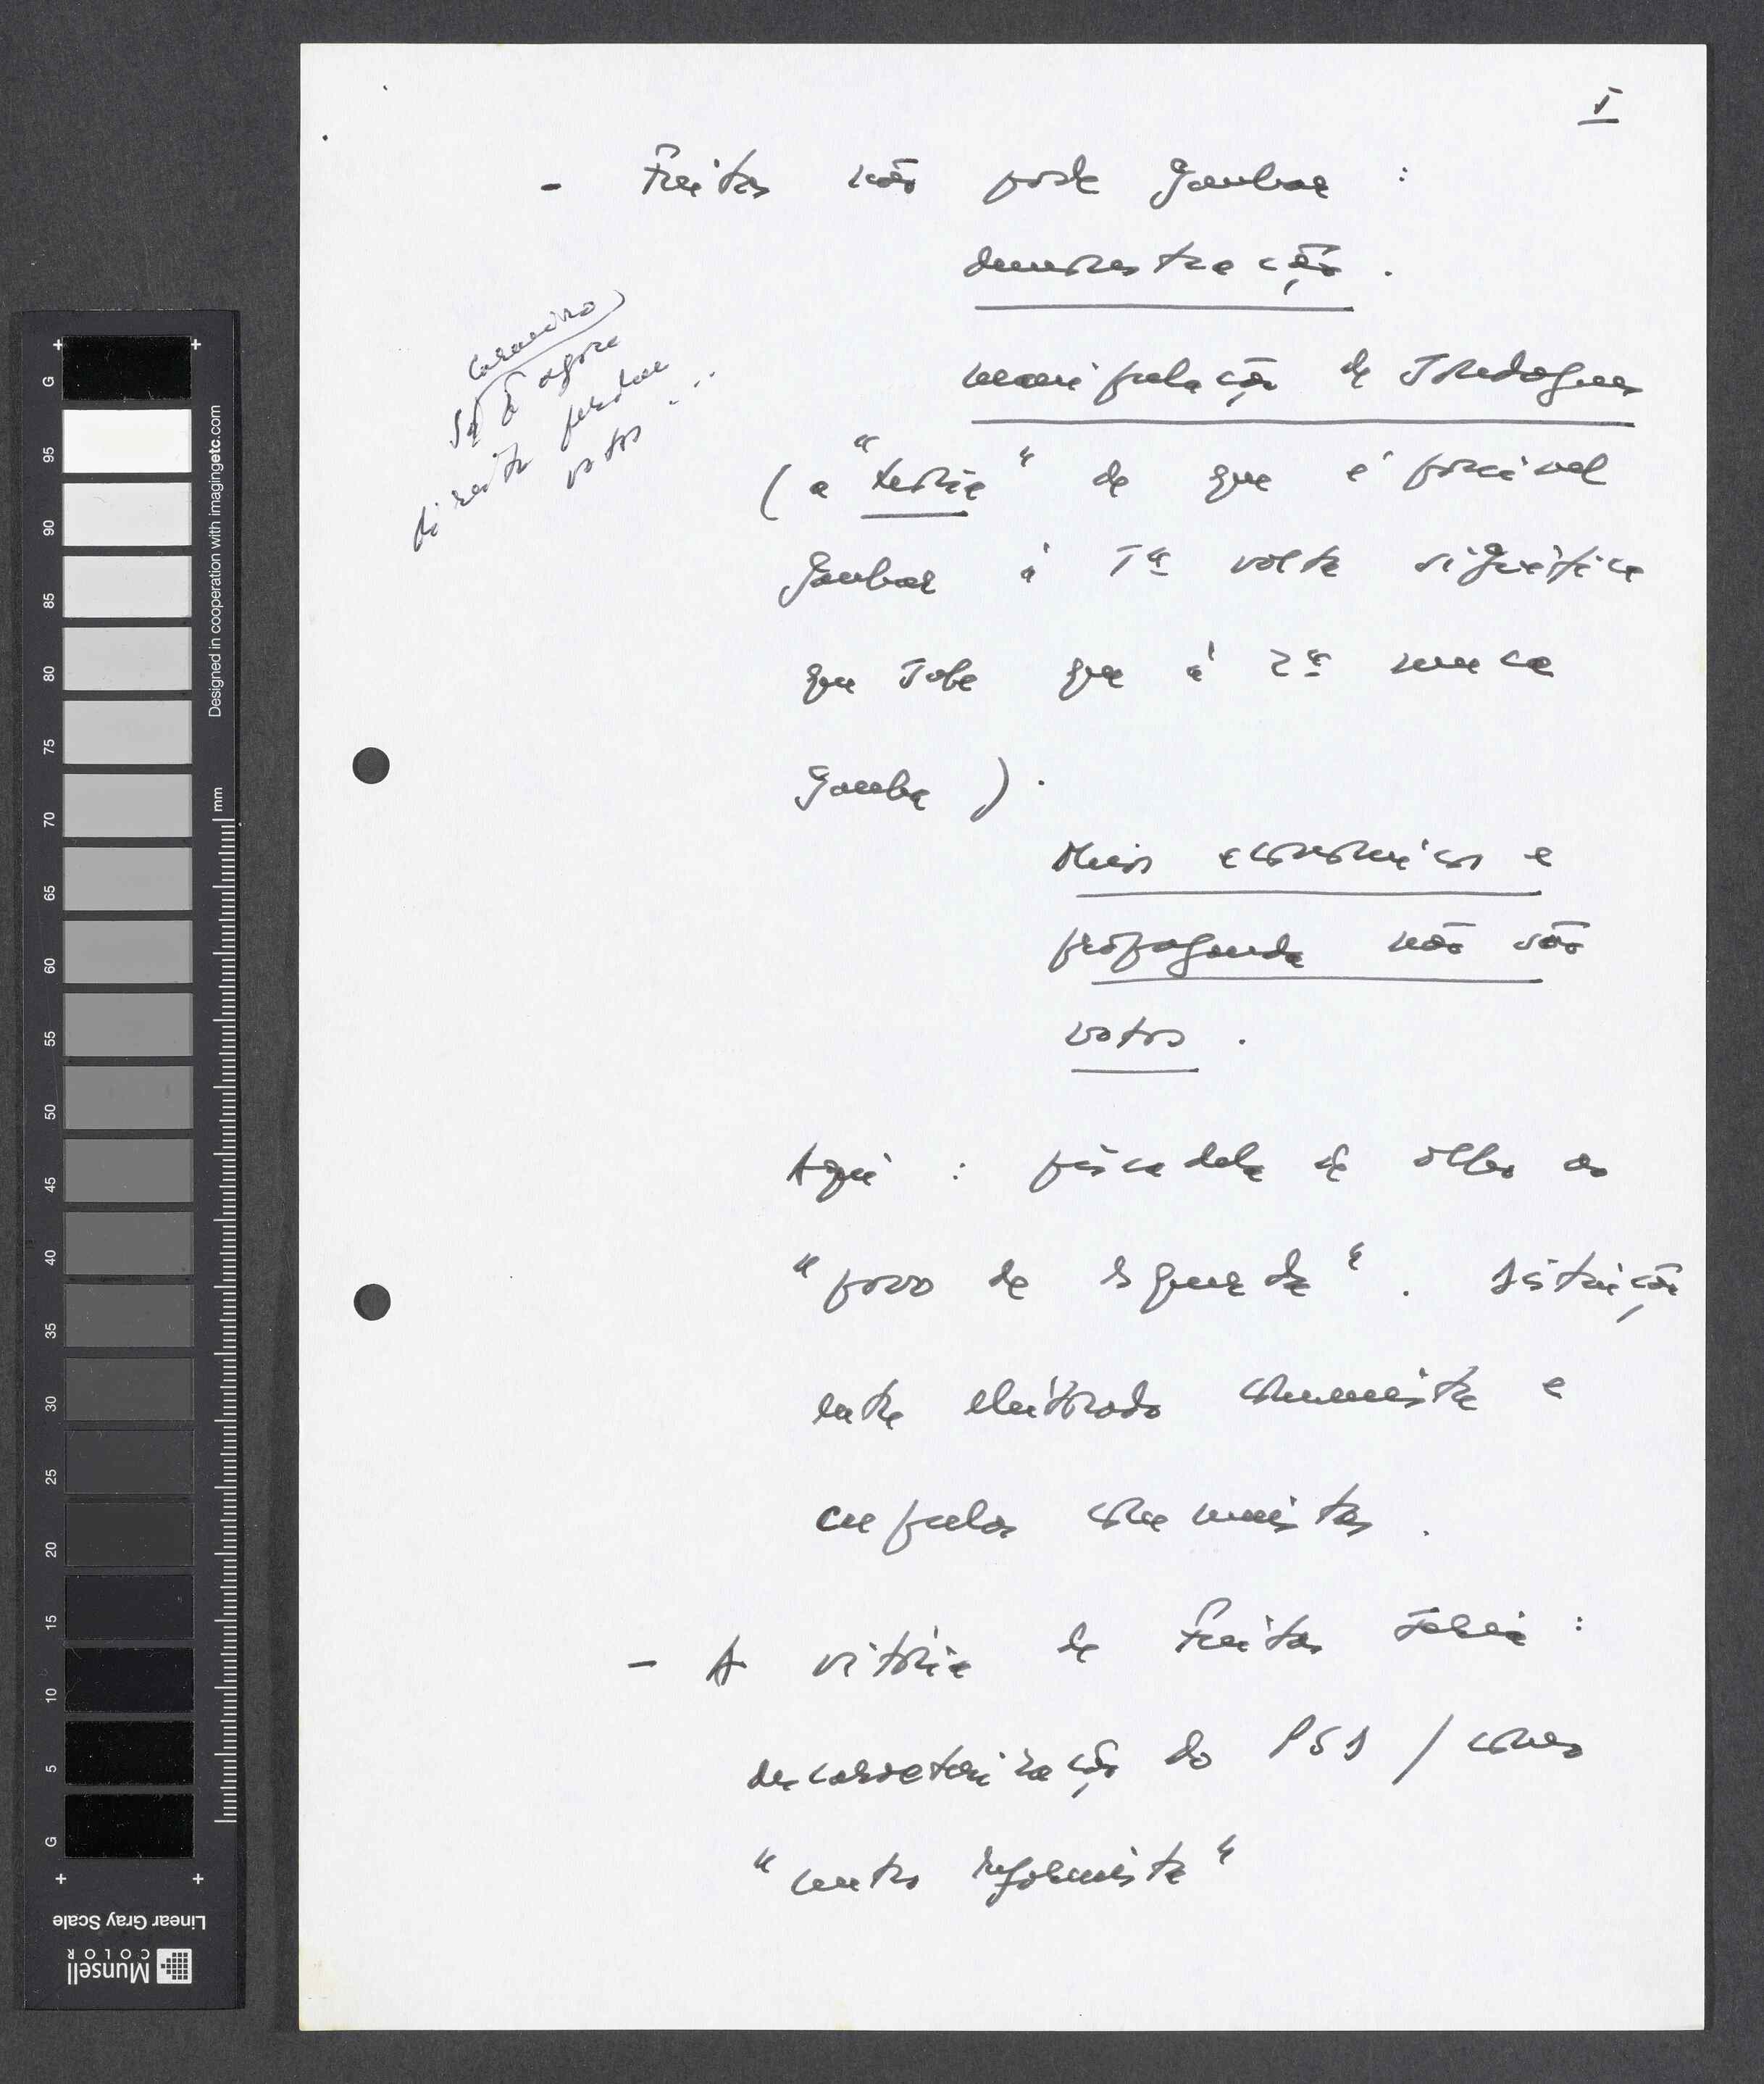 5
- Freitas não pode ganhar :
demonstração .
manipulação de sondagens
só agora
direita perder
votos ...
( a "teoria" de que é possível
ganhar à 1ª volta significa
que sabe que à 2ª nunca
ganha ) .
Meios económicos e
propaganda não são
votos .
Aqui : piscadela de olho ao
"povo de esquerda" . Distinção
entre eleitorado comunista e
cúpulas comunistas .
- A vitória de Freitas seria :
descaracterização do PSD / como
"centro reformista"
+ +
G
95
90
85
80
75
70
65
60
55
50
45
40
35
30
25
20
15
10
5
G
+ +
mm
Designed in cooperation with imagingetc.com
Linear Gray Scale
Munsell
COLOR